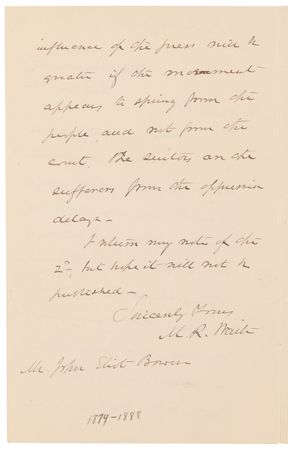 influence of the press will be
greater if the movement
appears to spring from the
people and not from the
court. The suitors are the
sufferers from the oppressive
delays -
I return my note of the
2d, but hope it will not be
published -
Sincerely Yours
M. R. Waite
Mr. John Eliot Bowen
1874-1888